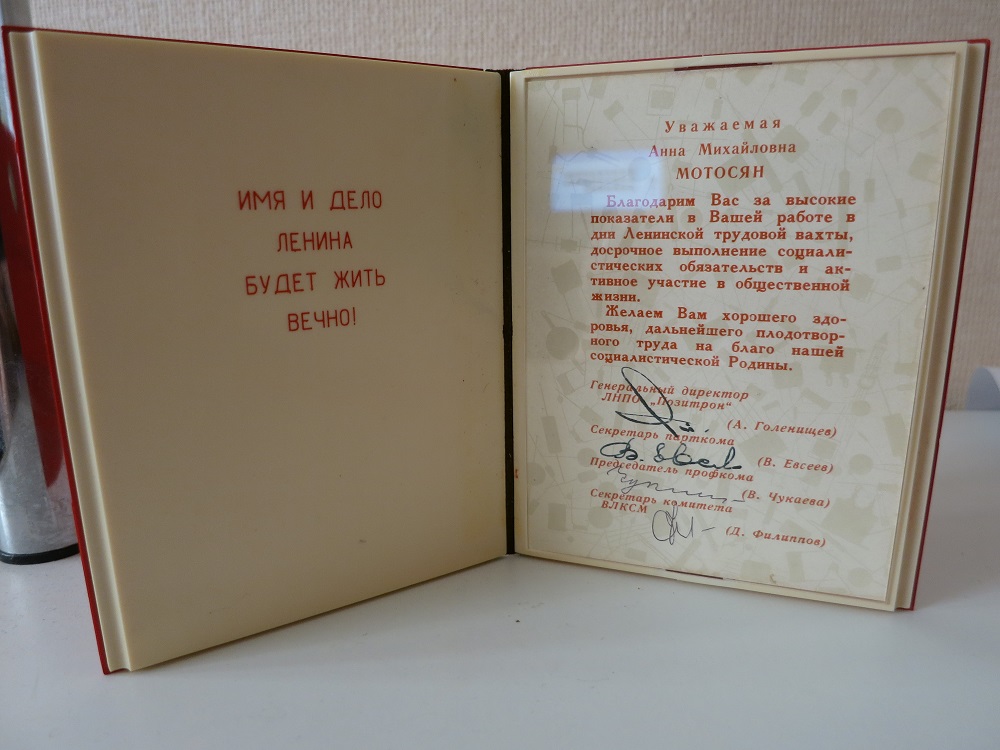 ИМЯ И ДЕЛО
ЛЕНИНА
БУДЕТ ЖИТЬ
ВЕЧНО!
Уважаемая
Анна Михайловна
МОТОСЯН
Благодарим Вас за высокие
показатели в Вашей работе в
дни Ленинской трудовой вахты,
досрочное выполнение социали-
стических обязательств и ак-
тивное участие в общественной
жизни.
Желаем Вам хорошего здо-
ровья, дальнейшего плодотвор-
ного труда на благо нашей
социалистической Родины.
Генеральный директор
ЛНПО „Позитрон“
(А. Голенищев)
Секретарь парткома
(В. Евсеев)
Председатель профкома
(В. Чукаева)
Секретарь комитета
ВЛКСМ
(Д. Филиппов)